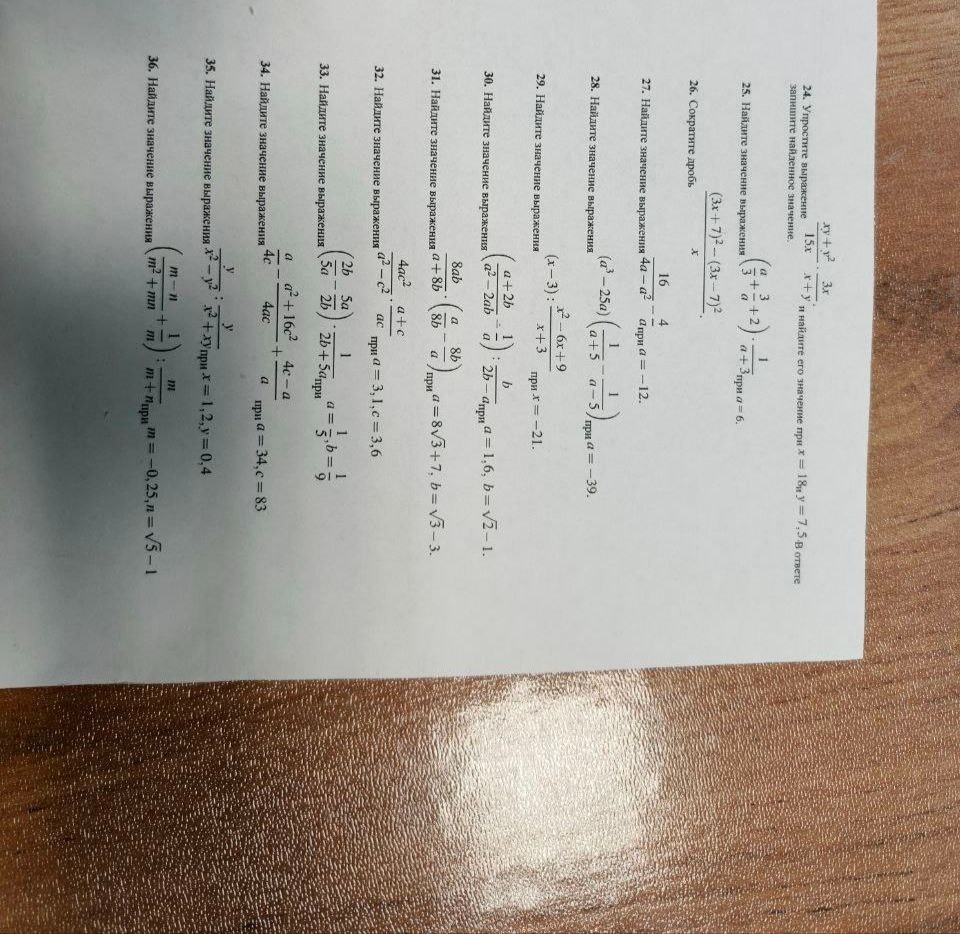 24. Упростите выражение \frac{xy+y^2}{15x} \cdot \frac{3x}{x+y} и найдите его значение при x = 18 и y = 7,5. В ответе
запишите найденное значение.
25. Найдите значение выражения \left(\frac{a}{3}+\frac{3}{a}+2\right) \cdot \frac{1}{a+3} при a = 6.
26. Сократите дробь \frac{(3x+7)^2-(3x-7)^2}{x}.
27. Найдите значение выражения \frac{16}{4a-a^2}-\frac{4}{a} при a = −12.
28. Найдите значение выражения (a^3-25a)\left(\frac{1}{a+5}-\frac{1}{a-5}\right) при a = −39.
29. Найдите значение выражения (x-3):\frac{x^2-6x+9}{x+3} при x = −21.
30. Найдите значение выражения \left(\frac{a+2b}{a^2-2ab}-\frac{1}{a}\right):\frac{b}{2b-a} при a = 1,6, b = \sqrt{2}-1.
31. Найдите значение выражения \frac{8ab}{a+8b} \cdot \left(\frac{a}{8b}-\frac{8b}{a}\right) при a = 8\sqrt{3}+7, b = \sqrt{3}-3.
32. Найдите значение выражения \frac{4ac^2}{a^2-c^2} \cdot \frac{a+c}{ac} при a = 3,1, c = 3,6
33. Найдите значение выражения \left(\frac{2b}{5a}-\frac{5a}{2b}\right) \cdot \frac{1}{2b+5a} при a = \frac{1}{5}, b = \frac{1}{9}
34. Найдите значение выражения \frac{a}{4c}-\frac{a^2+16c^2}{4ac}+\frac{4c-a}{a} при a = 34, c = 83
35. Найдите значение выражения \frac{y}{x^2-y^2}:\frac{y}{x^2+xy} при x = 1,2, y = 0,4
36. Найдите значение выражения \left(\frac{m-n}{m^2+mn}+\frac{1}{m}\right):\frac{m}{m+n} при m = −0,25, n = \sqrt{5}-1